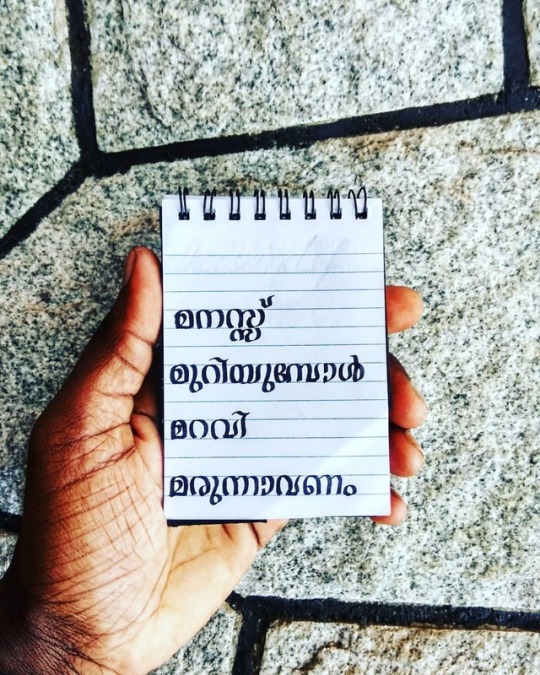 മനസ്സ്
മുറിയുമ്പോൾ
മറവി
മരുന്നാവണം